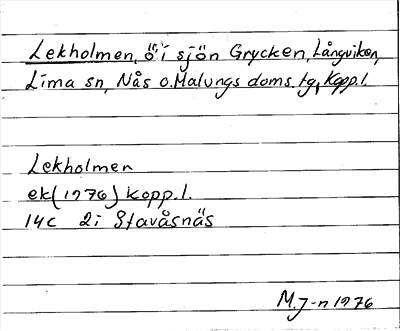 Lekholmen, ö i sjön Grycken, Långviken,
Lima sn, Nås o. Malungs doms. tg, Kopp. l.
Lekholmen
ek (1976) Kopp. l.
14c 2i Stavåsnäs
M. J-n 1976